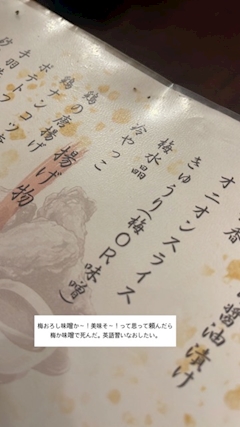 香
醤油漬け
オニオンスライス
きゅうり(梅OR味噌)
梅水晶
冷やっこ
揚げ物
鶏の唐揚げ
ナンコツ
ポテト
手羽
梅おろし味噌かー！美味そー！って思って頼んだら
梅か味噌で死んだ。英語習いなおしたい。